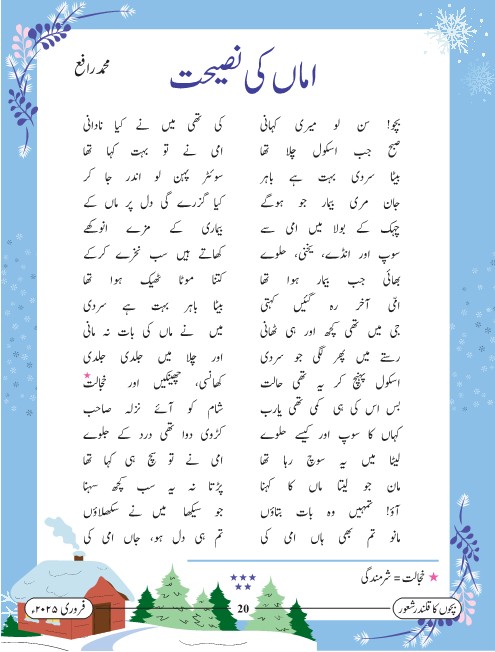 اماں کی نصیحت
محمد رافع
بچو! سن لو میری کہانی کی تھی میں نے کیا نادانی
صبح جب اسکول چلا تھا امی نے تو بہت کہا تھا
بیٹا سردی بہت ہے باہر سوئٹر پہن لو اندر جا کر
جان مری بیمار جو ہوگے کیا گزرے گی دل پر ماں کے
چہک کے بولا میں امی سے بیماری کے مزے انوکھے
سوپ اور انڈے، یخنی، حلوے کھاتے ہیں سب نخرے کرکے
بھائی جب بیمار ہوا تھا کتنا موٹا ٹھیک ہوا تھا
امّی آخر رہ گئیں کہتی بیٹا باہر بہت ہے سردی
جی میں تھی کچھ اور ہی ٹھانی میں نے ماں کی بات نہ مانی
رستے میں پھر لگی جو سردی اور چلا میں جلدی جلدی
اسکول پہنچ کر یہ تھی حالت کھانسی، چھینکیں اور خجالت*
بس اس کی ہی کمی تھی یارب شام کو آئے نزلہ صاحب
کہاں کا سوپ اور کیسے حلوے کڑوی دوا تھی درد کے جلوے
لیٹا میں یہ سوچ رہا تھا امی نے تو سچ ہی کہا تھا
مان جو لیتا ماں کا کہنا پڑتا نہ یہ سب کچھ سہنا
آؤ! تمہیں وہ بات بتاؤں جو سیکھا میں نے سکھلاؤں
مانو تم بھی ہاں امی کی تم ہی دل ہو، جاں امی کی
* خجالت = شرمندگی
بچوں کا قلندر شعور 20 فروری ۲۰۲۵ء